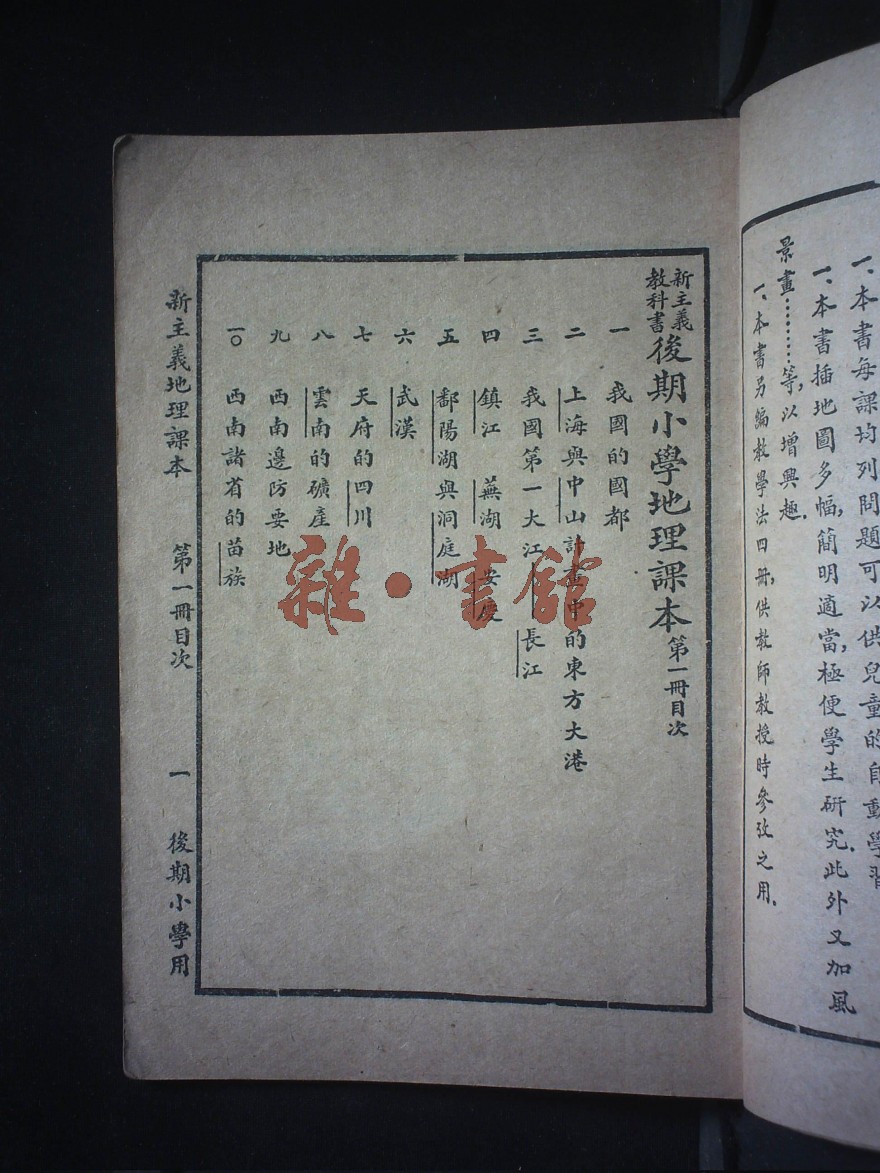 一、本書每課均列問題可以供兒童的自動學習
一、本書插地圖多幅,簡明適當,極便學生研究.此外又加風
景畫………等,以增興趣.
一、本書另編教學法四冊,供教師教授時參攷之用.
新主義
教科書
後期小學地理課本第一冊目次
一 我國的國都
二 上海與中山計畫中的東方大港
三 我國第一大江——長江
四 鎮江 蕪湖 安慶
五 鄱陽湖與洞庭湖
六 武漢
七 天府的四川
八 雲南的礦產
九 西南邊防要地
一〇 西南諸省的苗族
新主義地理課本 第一冊目次 一 後期小學用
雜·書館